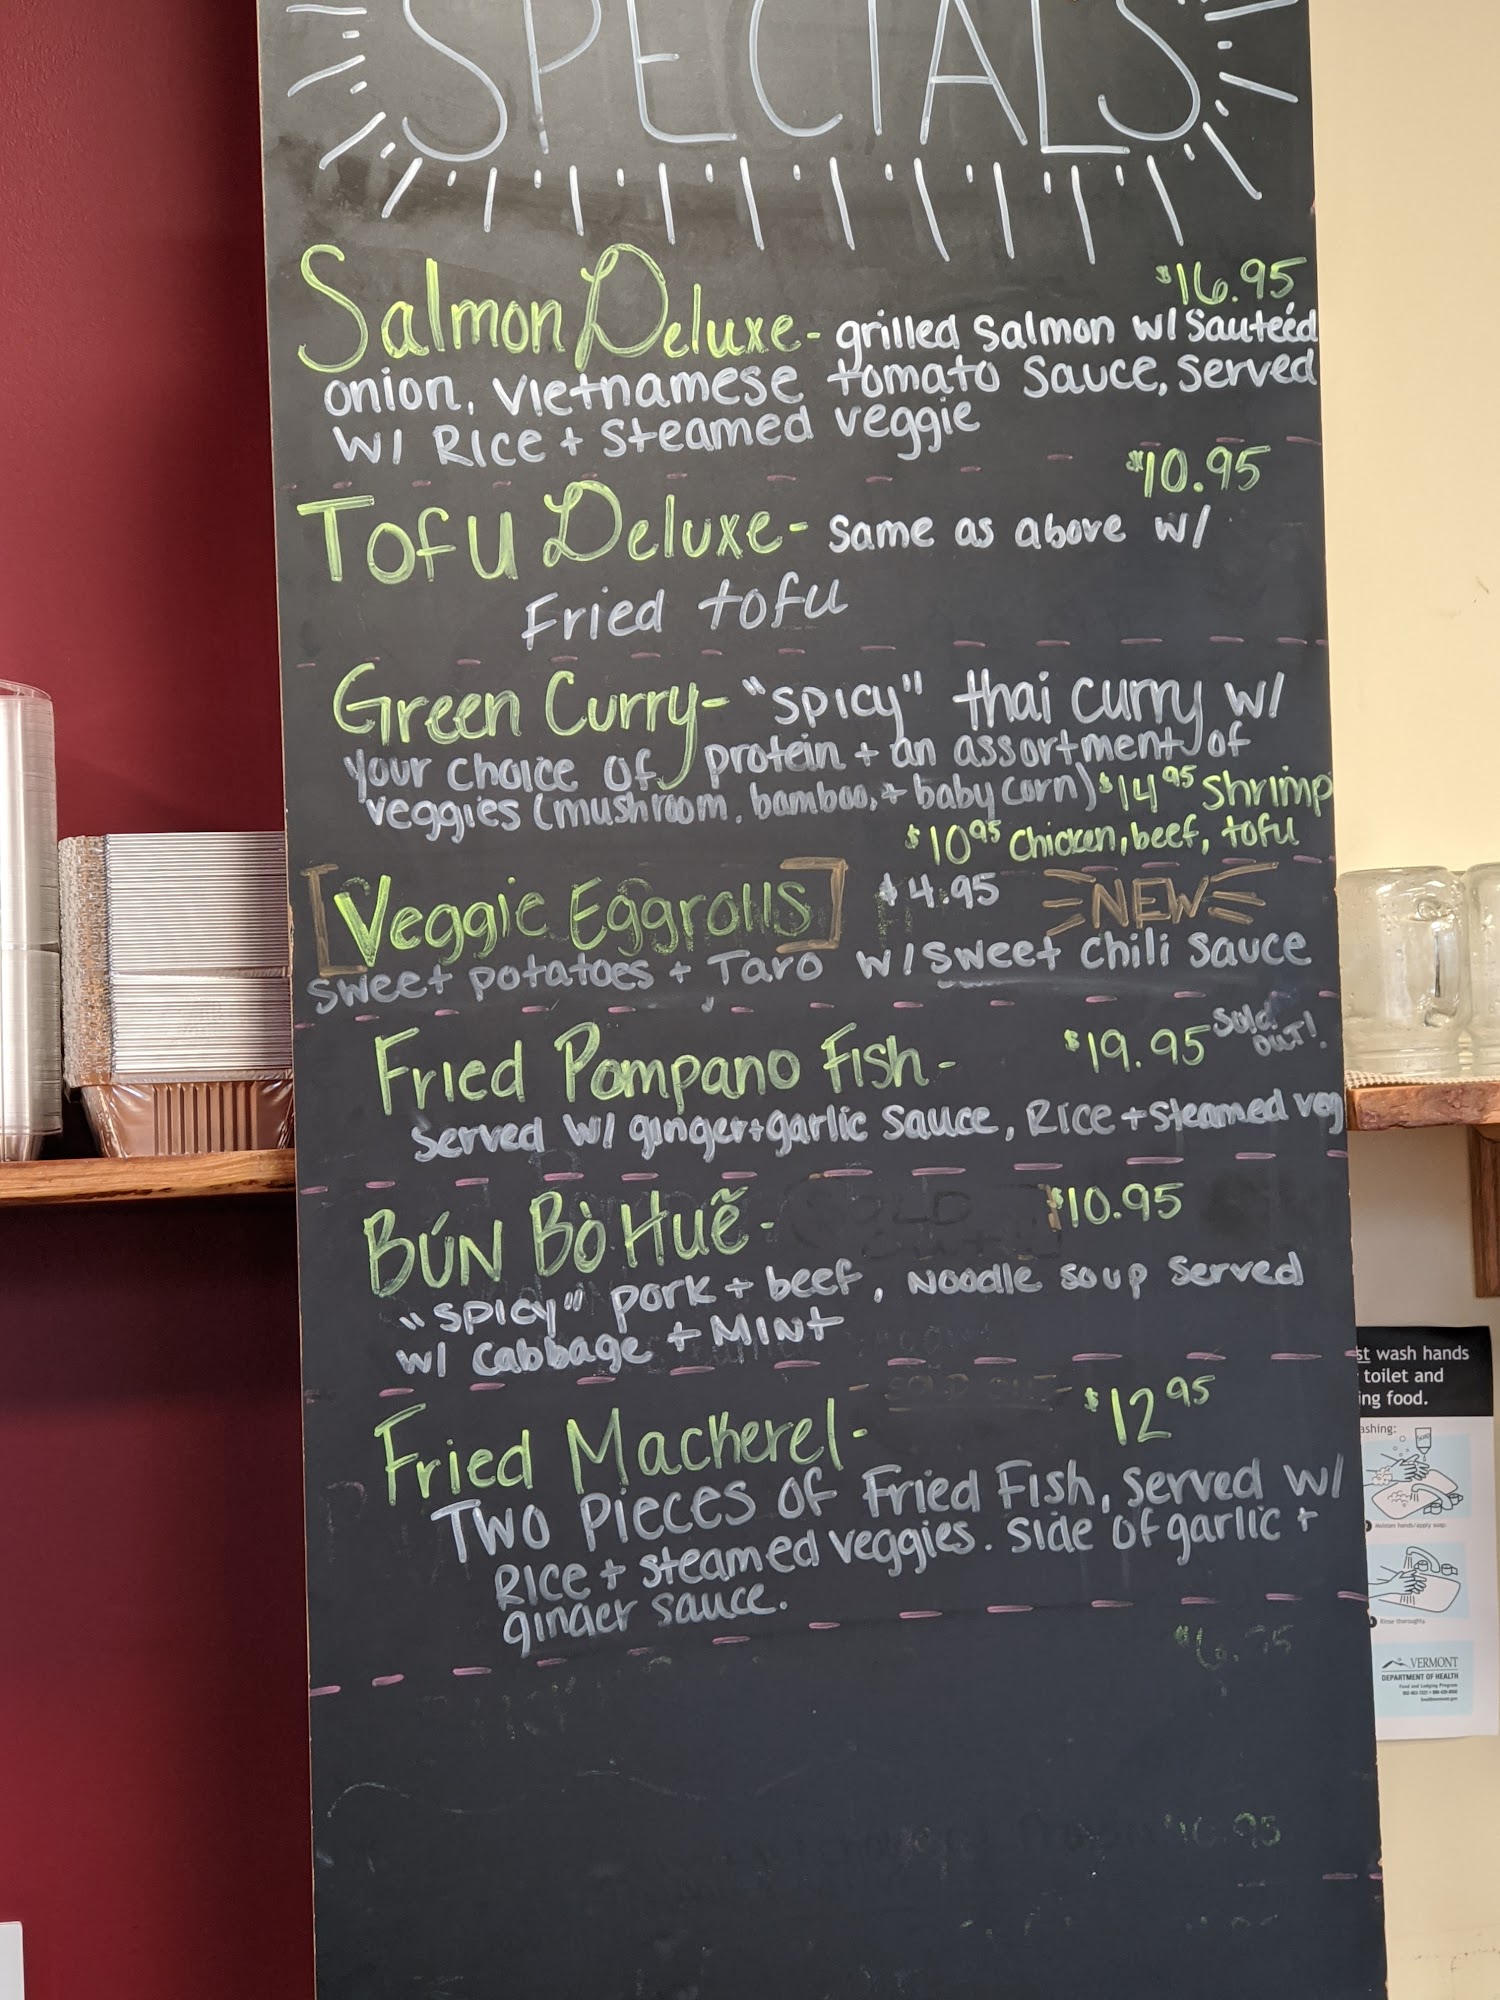 SPECIALS
$16.95
Salmon Deluxe - grilled salmon w/ sauteéd
onion, vietnamese tomato sauce, served
w/ Rice + steamed veggie
$10.95
Tofu Deluxe - same as above w/
Fried tofu
Green Curry - "spicy" thai curry w/
your choice of protein + an assortment of
veggies (mushroom, bamboo, + baby corn) $14.95 shrimp
$10.95 chicken, beef, tofu
[Veggie Eggrolls] $4.95 NEW
sweet potatoes + Taro w/ sweet chili sauce
Fried Pompano Fish - $19.95 Sold out!
served w/ ginger+garlic sauce, Rice + steamed veg
BÚN BÒ HUẼ - $10.95
"spicy" pork + beef, noodle soup served
w/ cabbage + MINT
Fried Mackerel - $12.95
Two pieces of Fried Fish, served w/
Rice + steamed veggies. side of garlic +
ginger sauce.
st wash hands
toilet and
ing food.
ashing:
Moisten hands/apply soap.
Rinse thoroughly.
VERMONT
DEPARTMENT OF HEALTH
Food and Lodging Program